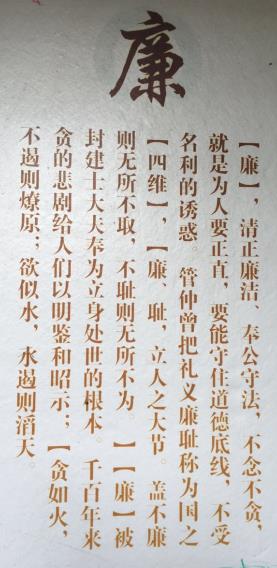 廉
【廉】，清正廉洁、奉公守法，不念不贪，
就是为人要正直，要能守住道德底线，不受
名利的诱惑。管仲曾把礼义廉耻称为国之
【四维】，【廉、耻，立人之大节。盖不廉
则无所不取，不耻则无所不为。】【廉】被
封建士大夫奉为立身处世的根本。千百年来
贪的悲剧给人们以明鉴和昭示；【贪如火，
不遏则燎原；欲似水，水遏则滔天。